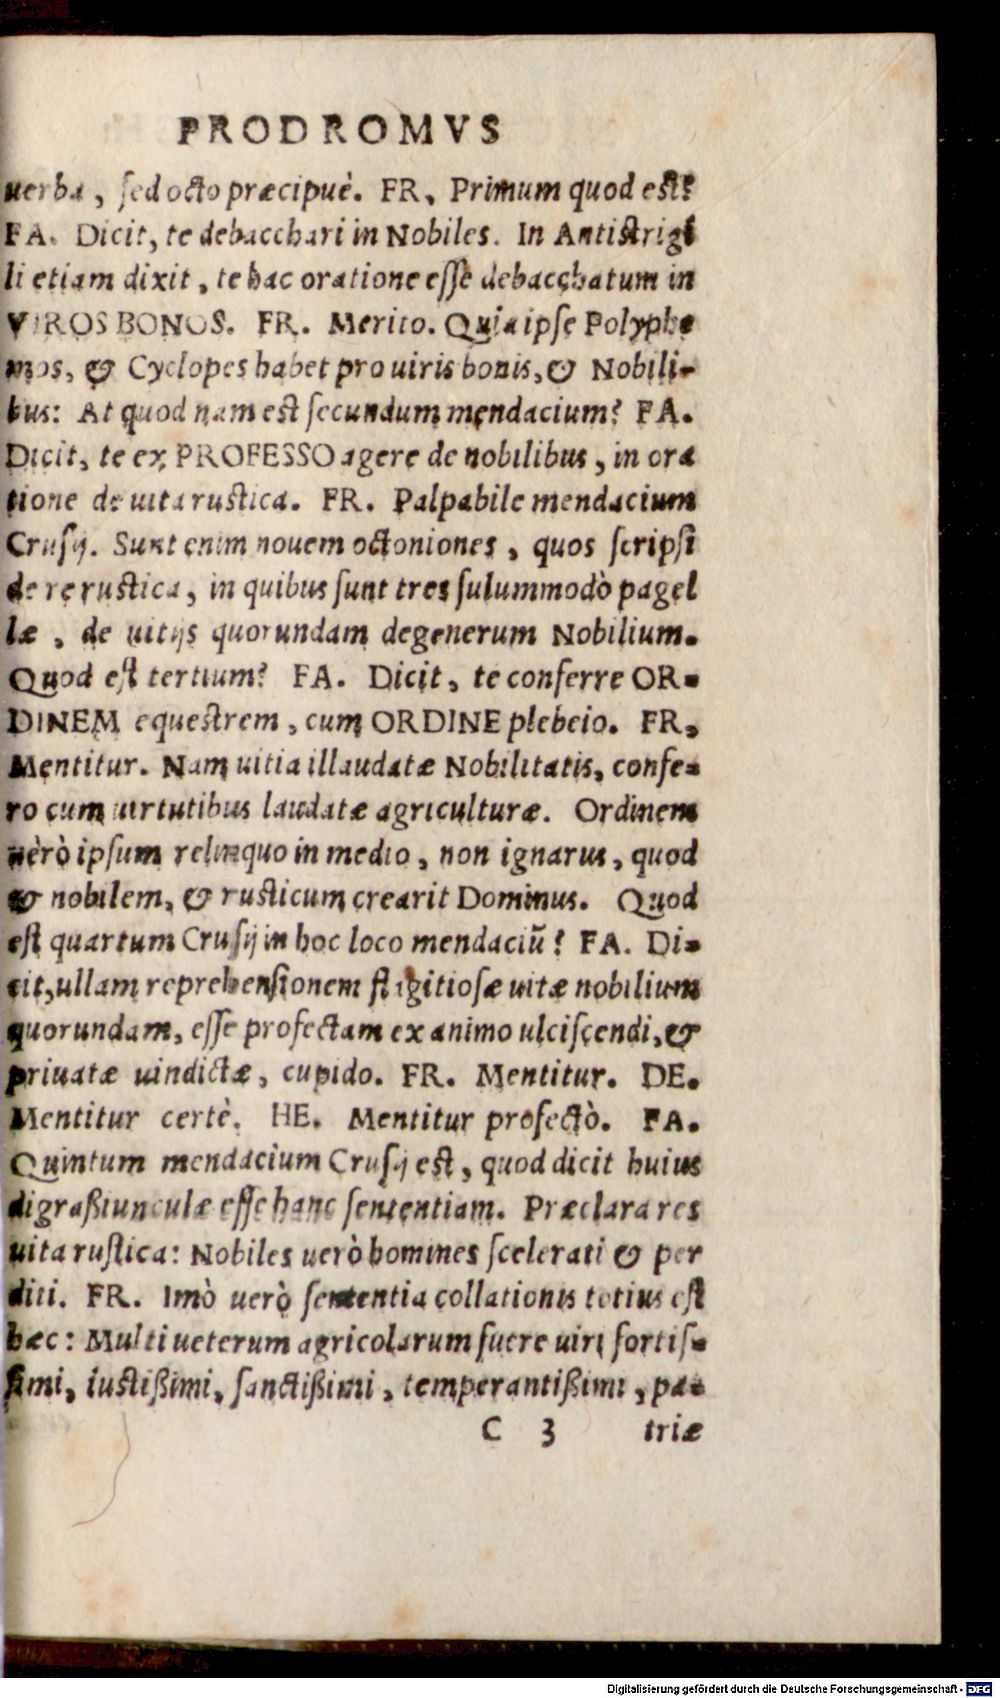 PRODROMVS
uerba, sed octo præcipuè. FR. Primum quod est?
FA. Dicit, te debacchari in Nobiles. In Antistrigi
li etiam dixit, te hac oratione esse debacchatum in
VIROS BONOS. FR. Merito. Quia ipse Polyphe
mos, & Cyclopes habet pro uiris bonis, & Nobili-
bus: At quod nam est secundum mendacium? FA.
Dicit, te ex PROFESSO agere de nobilibus, in ora
tione de uita rustica. FR. Palpabile mendacium
Crusij. Sunt enim nouem octoniones, quos scripsi
de re rustica, in quibus sunt tres sulummodò pagel
læ, de uitijs quorundam degenerum Nobilium.
Quod est tertium? FA. Dicit, te conferre OR-
DINEM equestrem, cum ORDINE plebeio. FR.
Mentitur. Nam uitia illaudatæ Nobilitatis, confe-
ro cum uirtutibus laudatæ agriculturæ. Ordinem
uèrò ipsum relinquo in medio, non ignarus, quod
& nobilem, & rusticum crearit Dominus. Quod
est quartum Crusij in hoc loco mendaciũ? FA. Di-
cit, ullam reprehensionem flagitiosæ uitæ nobilium
quorundam, esse profectam ex animo ulciscendi, &
priuatæ uindictæ, cupido. FR. Mentitur. DE.
Mentitur certè. HE. Mentitur profectò. FA.
Quintum mendacium Crusij est, quod dicit huius
digraßiunculæ esse hanc sententiam. Præclara res
uita rustica: Nobiles uerò homines scelerati & per
diti. FR. Imò uerò sententia collationis totius est
hæc: Multi ueterum agricolarum fuere uiri fortis-
simi, iustißimi, sanctißimi, temperantißimi, pa-
C 3 triæ
Digitalisierung gefördert durch die Deutsche Forschungsgemeinschaft - DFG